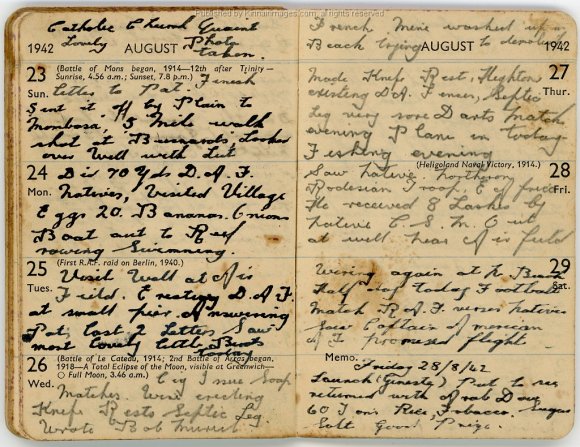 Published by © Kinnaimages.com, all rights reserved
Catholic Church Quaint
Lovely Photo
1942 AUGUST taken.
23 (Battle of Mons began, 1914—12th after Trinity—
Sunrise, 4.56 a.m.; Sunset, 7.8 p.m.) Finish
Sun. letter to Pat.
Sent it off by Plain to
Mombosa, 5 Mile walk
shot at Buzzards, Looked
over Well with Lit
24 Did 70 Yds D.A.F.
Mon. natives, Visited Village
Eggs 20. Bananas. Onions
Boat out to Reef
rowing Swimming.
25 (First R.A.F. raid on Berlin, 1940.)
Tues. Visit Well at A is
Field. Erecting D.A.F.
at small pier. Answering
Pat last 2 Letters Saw
most Lovely little Birds
today
26 (Battle of Le Cateau, 1914; 2nd Battle of Arras began,
1918—A Total Eclipse of the Moon, visible at Greenwich—
○ Full Moon, 3.46 a.m.)
Wed. Cig Issue Soap
Matches. Wire erecting
Knife Rests Septic Leg.
Wrote Bob
French Mine washed up on
Beach trying to
AUGUST 1942
27
Thur.
Made Knife Rest,
erecting D.A. Fences, Septic
Leg very sore Darts Match
evening Plane in today
Fishing evening
(Heligoland Naval Victory, 1914.)
28
Fri.
Saw native northern
Rodesian Troop,
He received 8 Lashes by
native C.S.M. 6
at well near A is field
29
Sat.
Wiring again at
Half day today Football
Match R.A.F. verses natives
Captain of
promised flight
Memo. Friday 28/8/42
Launch (Ginesta) Put to sea
returned with Arab Dow
60 Tons Rice, Tobacco. Sugar
Salt Good Prize.